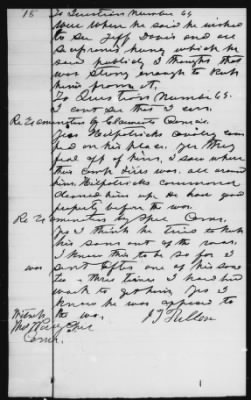 15 To Question Number 64
Well when he said he wished
to see Jeff Davis and are
supremes hung which he
said publicly I thought that
was strong enough to
him prove it.
To Question Number 65.
I cant see that I can.
Re Examination by Claimants Council
Yes Kilpatricks cavalry camp
ed on his place. Yes they
fed off of him, I saw where
the camp fires was all around
him Kilpatricks command
cleaned him up. He had good
property before the war.
Re Examination by Spec Com.
Yes I think he tried to keep
his sons out of the war.
I know this to be so for I
was sent after one of his sons
two or three times I had hard
work to get him, Yes I
know he was opposed to
the war.
Witness
J T Fuller
Spec
Comr.